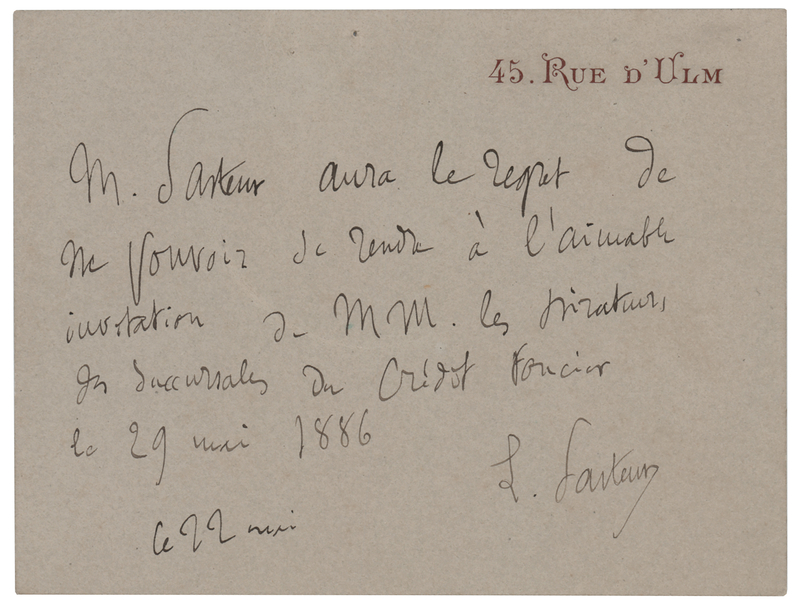 45. RUE D'ULM
M. Pasteur aura le regret de
ne pouvoir se rendre à l'aimable
invitation de MM. les
des succursales du Crédit Foncier
le 29 mai 1886
L. Pasteur
Ce 22 mai